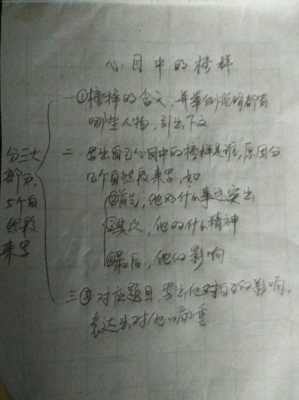 心目中的榜样
一①榜样的含义，并举例说明都有
哪些人物，引出下文
分三大
部分，
5个自
然段
来写
二 写出自己心目中的榜样是谁，原因分
几个自然段来写，如
②首先，他的什么事迹突出
③其次，他的什么精神
④最后，他的影响
三⑤对应题目，写出他对自己的影响，
表达出对他的